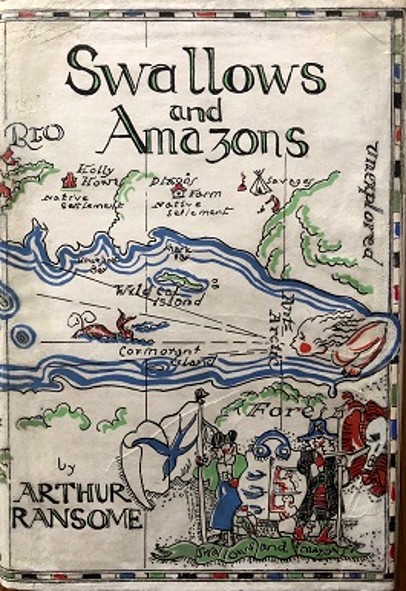 Swallows
and
Amazons
RIO
Holly
Howe
Native
settlement
Dixon's
Farm
Native
settlement
Savages
Unexplored
Shark
Bay
Wild Cat
Island
Cormorant
Island
Arctic
by
ARTHUR
RANSOME
Swallows and Amazons